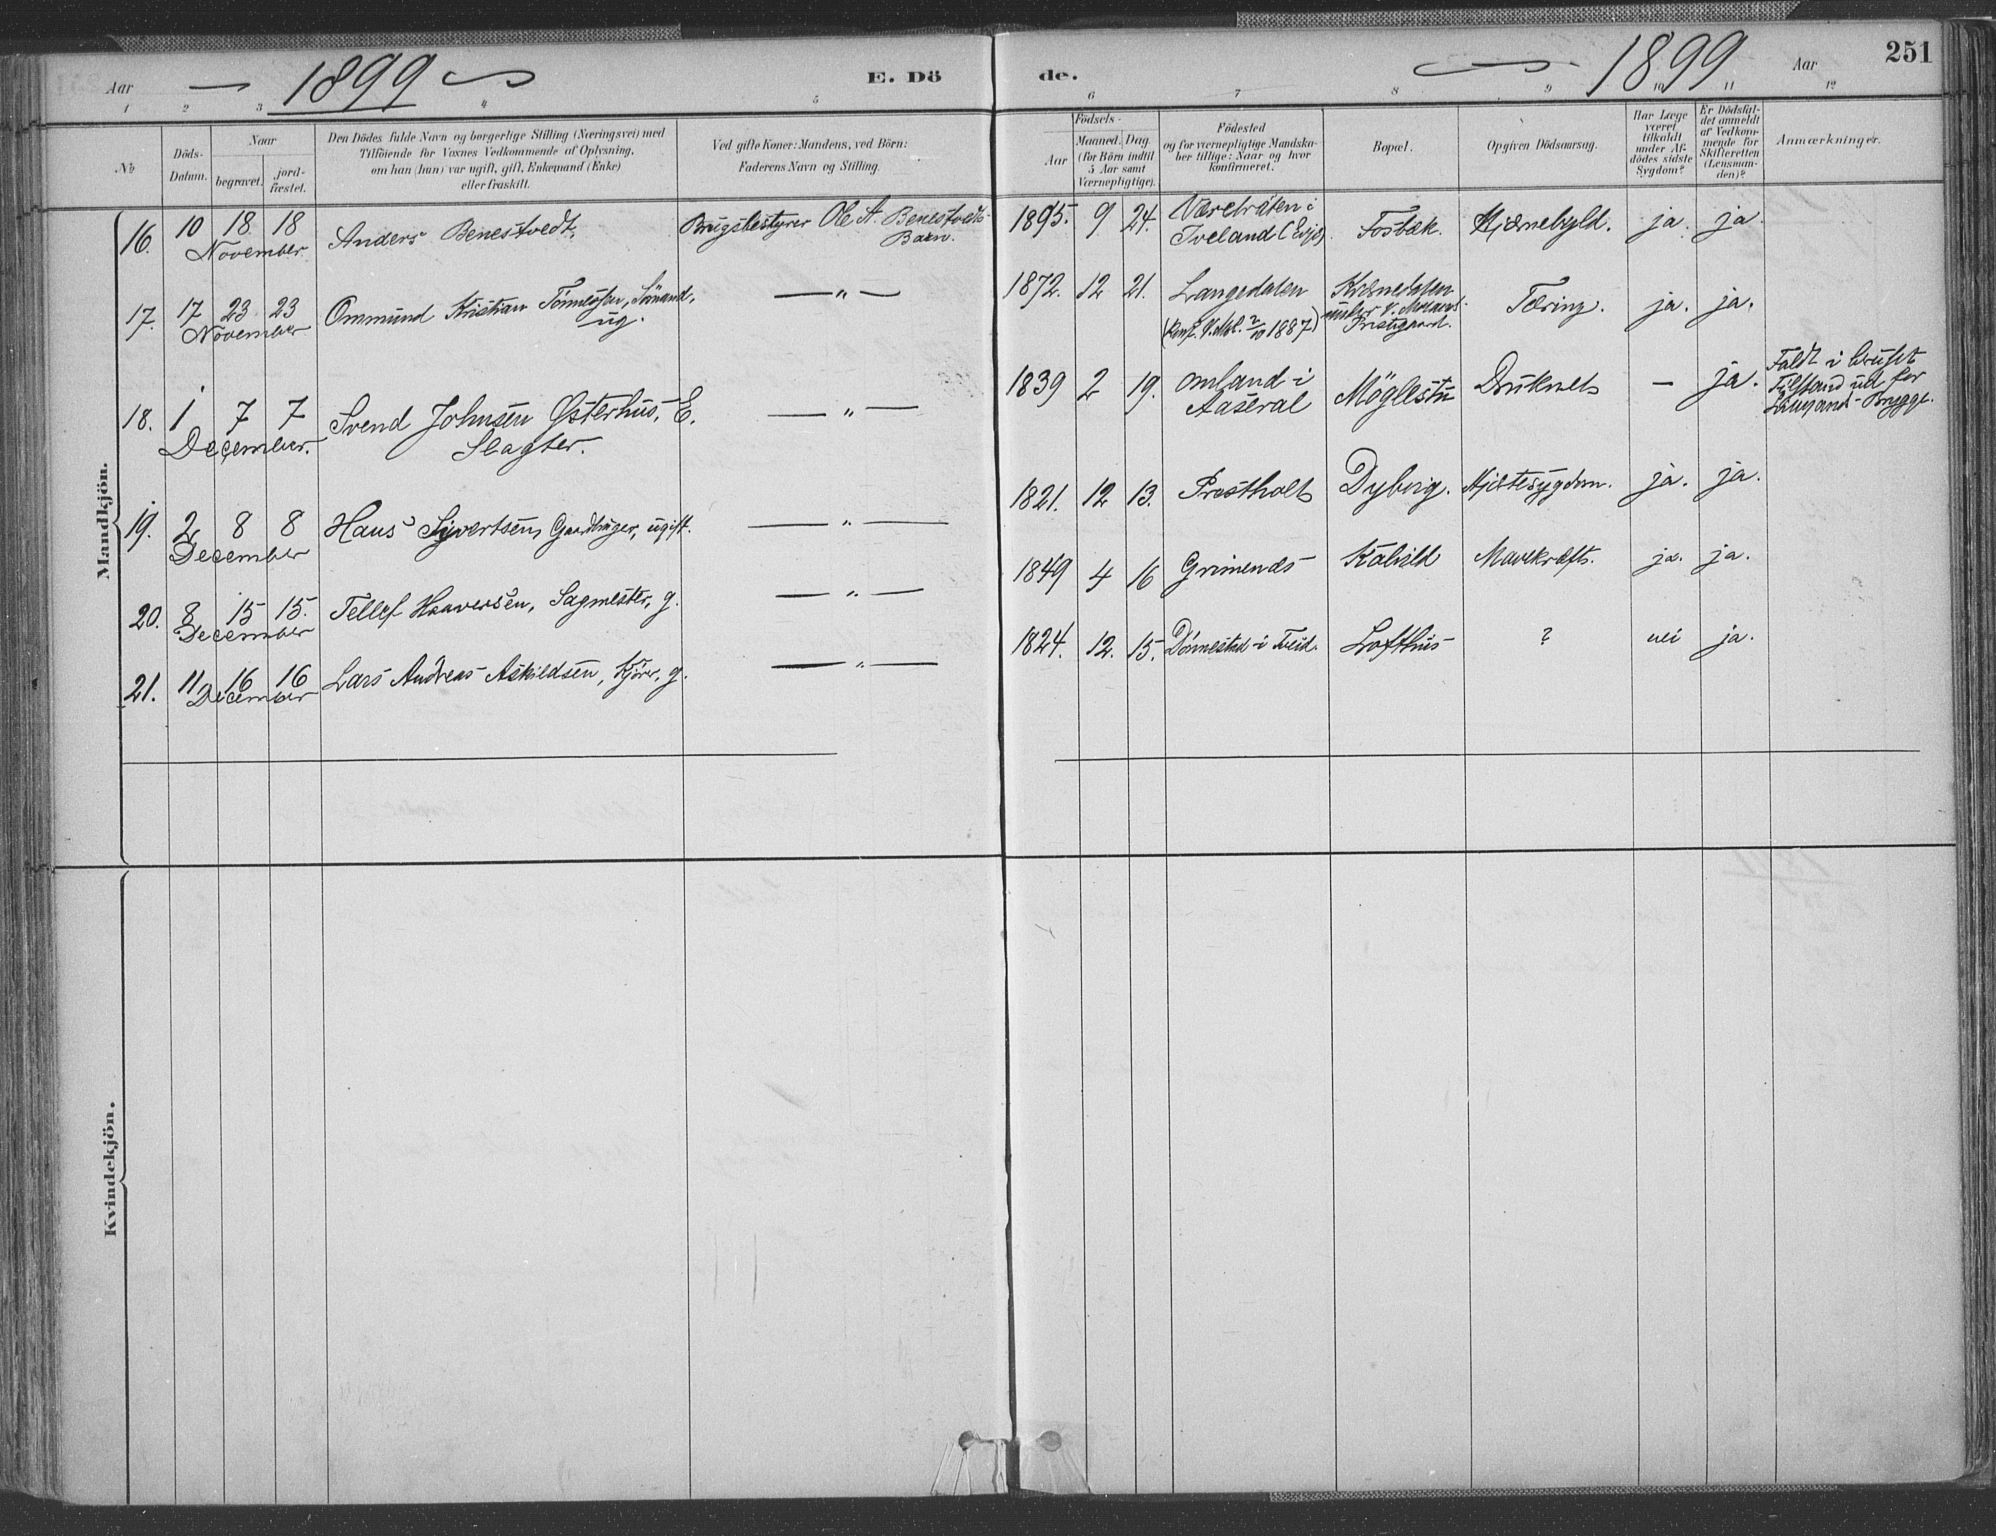 Aar 1899 E. Dö
1 2 3 4 5
No
Döds-
Datum.
Naar
begravet.
jord-
fæstet.
Den Dödes fulde Navn og borgerlige Stilling (Næringsvei) med
Tilföiende for Voxnes Vedkommende af Oplysning,
om han (hun) var ugift, gift, Enkemand (Enke)
eller fraskilt.
Ved gifte Koner: Mandens, ved Börn:
Faderens Navn og Stilling.
Mandkjön.
16. 10 18 18 Anders Benestvedt, Brugsbestyrer Ole A. Benestvedts
November Barn.
17. 17 23 23 Ommund Kristian Tönnessen, Sömand,
November ug. — " —
18. 1 7 7 Svend Johnsen Østerhus, E. — " —
December. Slagter.
19. 2 8 8 Hans Syvertsen, Gaardbruger, ugift. — " —
December
20. 8 15 15. Tellef Haaversen, Sagmester, g. — " —
December
21. 11 16 16 Lars Andreas Askildsen, g. — " —
December
Kvindekjön.
de. 1899 Aar 251
6 7 8 9 10 11 12
Födsels-
Aar
Maaned. Dag.
(for Börn indtil
5 Aar samt
Værnepligtige).
Födested
og for værnepligtige Mandska-
ber tillige: Naar og hvor
konfirmeret.
Bopæl.
Opgiven Dödsaarsag.
Har Læge
været
tilkaldt
under Af-
dödes sidste
Sygdom?
Er Dödsfal-
det anmeldt
af Vedkom-
mende for
Skifteretten
(Lensman-
den)?
Anmærkninger.
1895. 9 24. Iveland (Evje). Fosbæk. Hjernebyld. ja. ja.
1872. 12 21. Langedalen Tæring. ja. ja.
(Konf. V. Mol. 2/10 1887) under V. Molands
Prestgaard.
1839 2 19. Omland i Möglestu Druknet — ja. Faldt i beruset
Aaseral Tilstand ud for
Brygge.
1821. 12 13. Prestholt Dybvig. Hjertesygdom. ja. ja.
1849 4 16 Grimenes Kalvild Mavekræft. ja. ja.
1824. 12. 15. Dönnestad i Tveid. Lofthus ? nei ja.